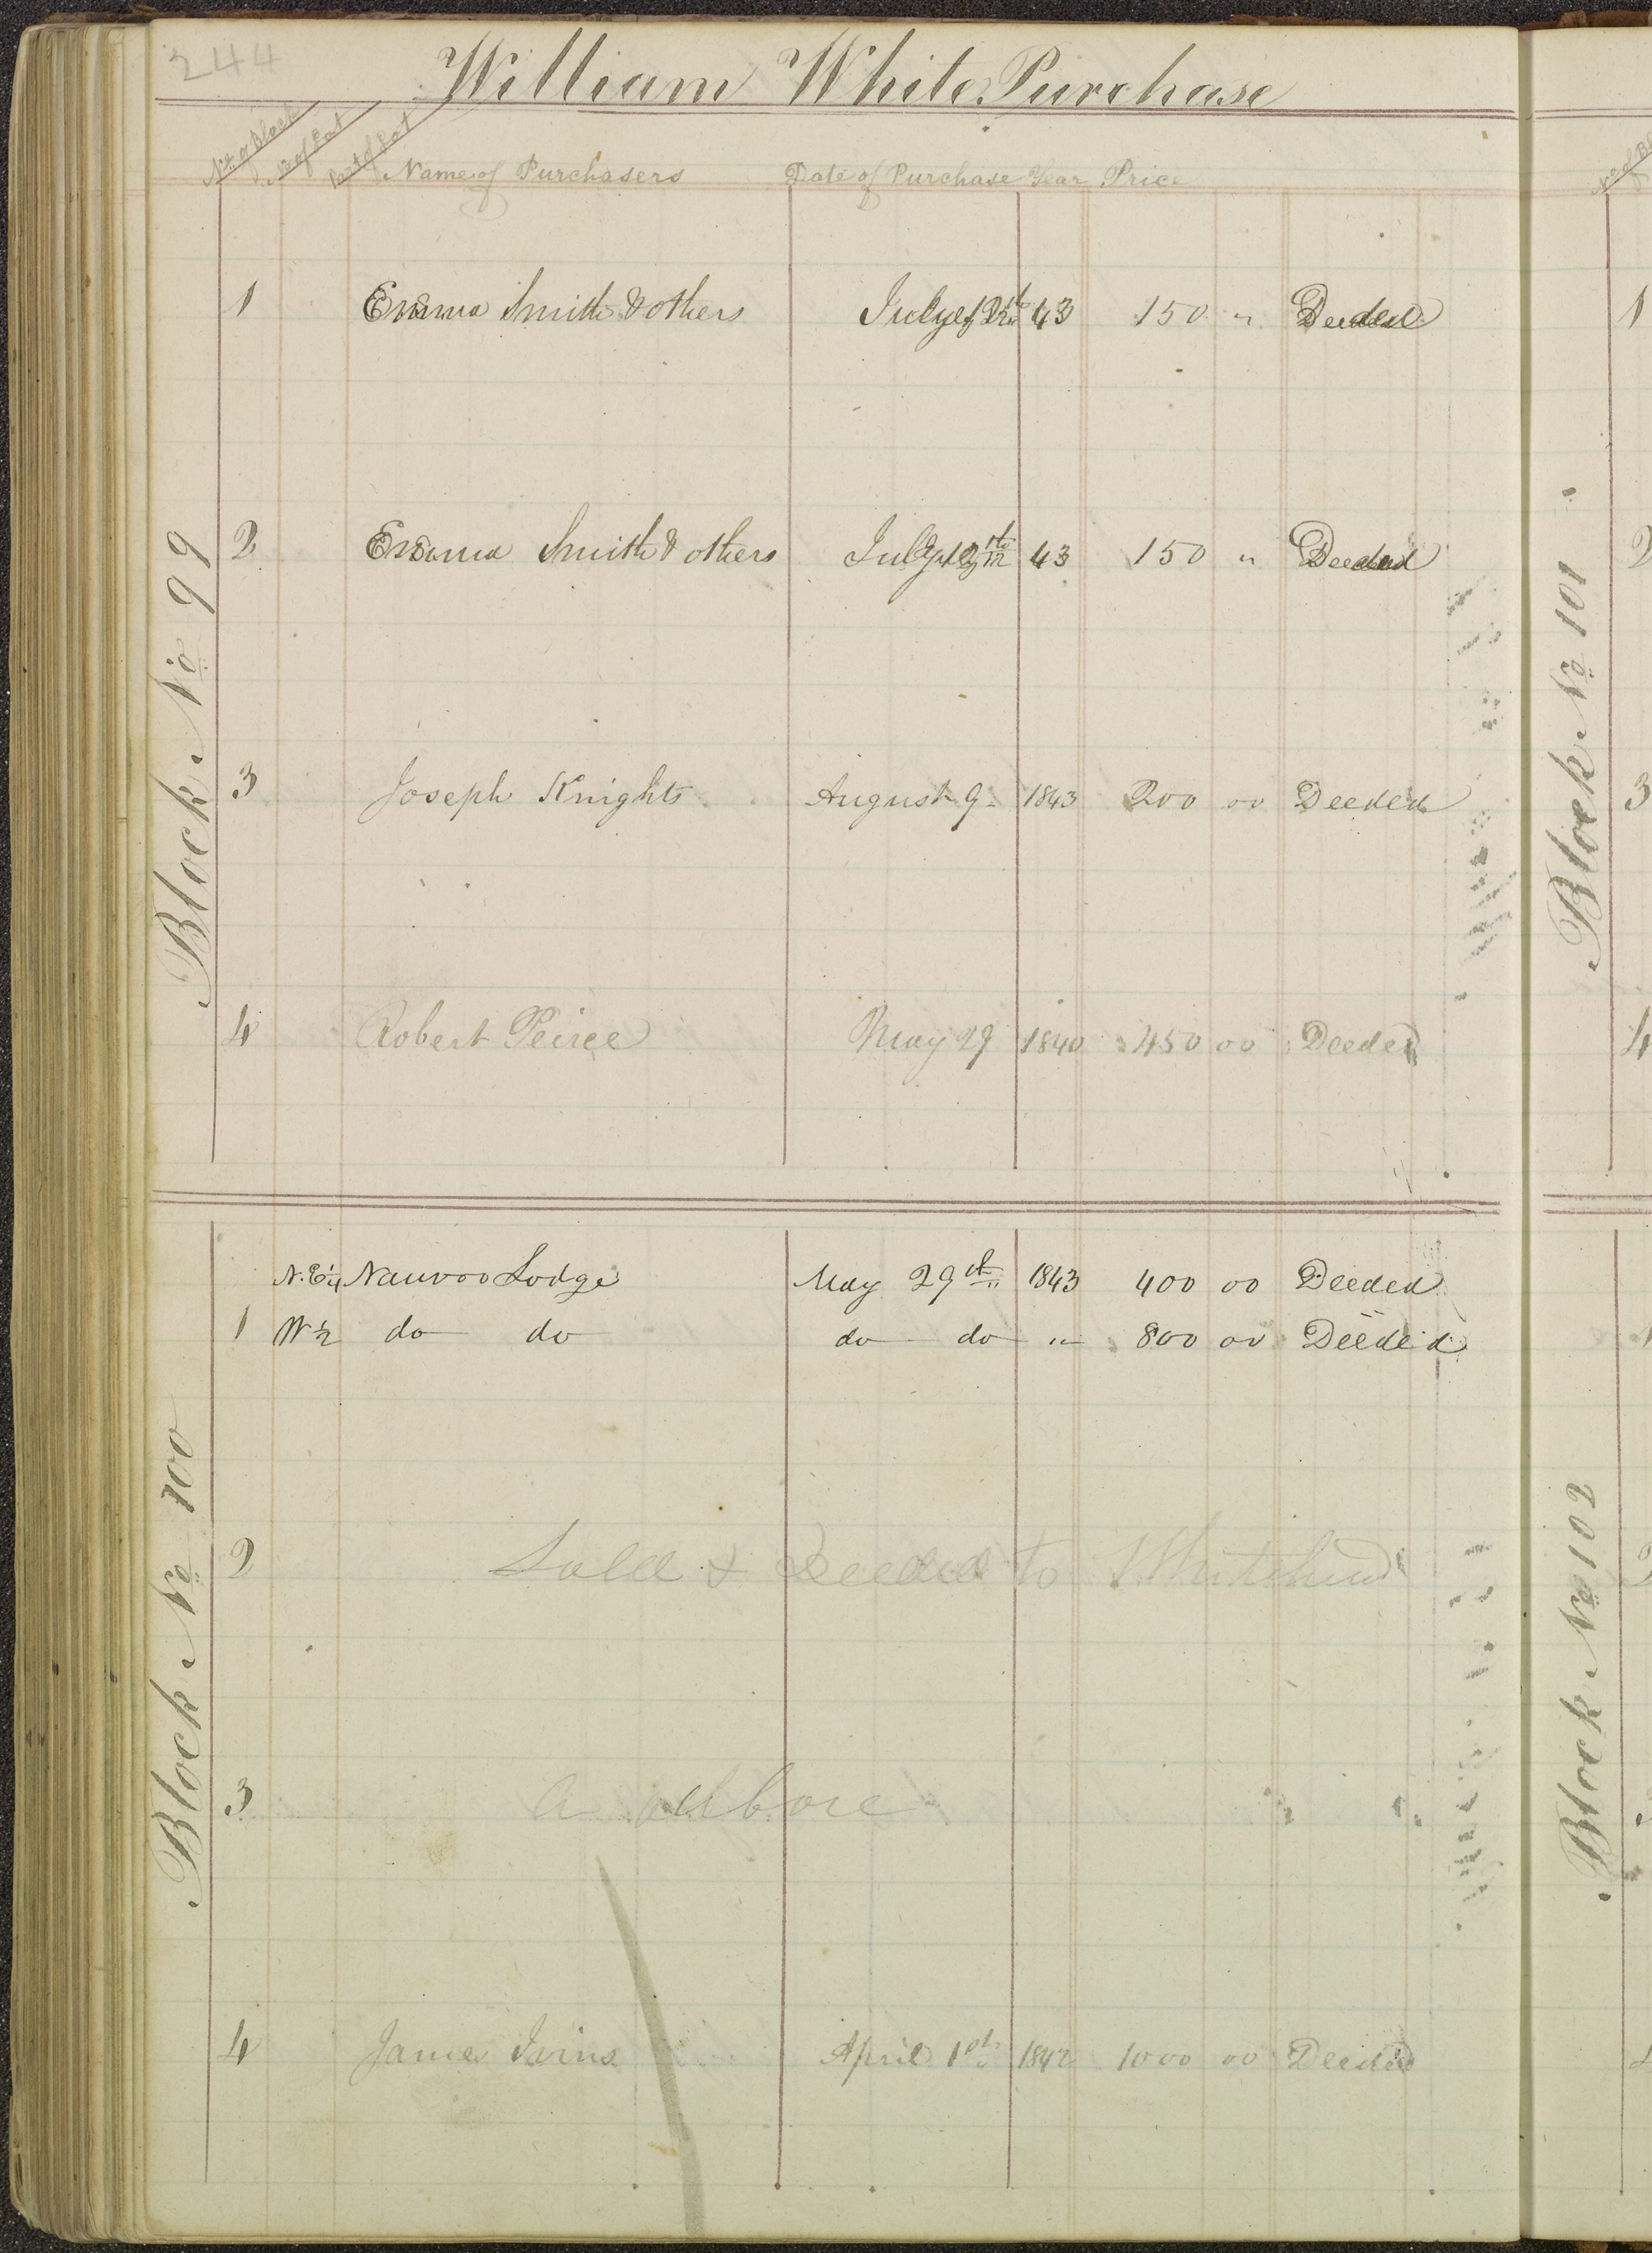 244
William White Purchase
No of Block No of Lot Part of Lot Name of Purchasers Date of Purchase Year Price
Block No 99
1 Emma Smith & others July 12th 43 150 " Deeded
2 Emma Smith & others July 12th 43 150 " Deeded
3 Joseph Knights August 9 1843 200 00 Deeded
4 Robert Peirce May 29 1840 450 00 Deeded
Block No 100
N.E ¼ Nauvoo Lodge May 29th 1843 400 00 Deeded
1 W ½ do do do do " 800 00 Deeded
2 Sold & Deeded to
3 a above
4 James Ivins April 1st 1842 1000 00 Deeded
Block No 101
1
2
3
4
Block No 102